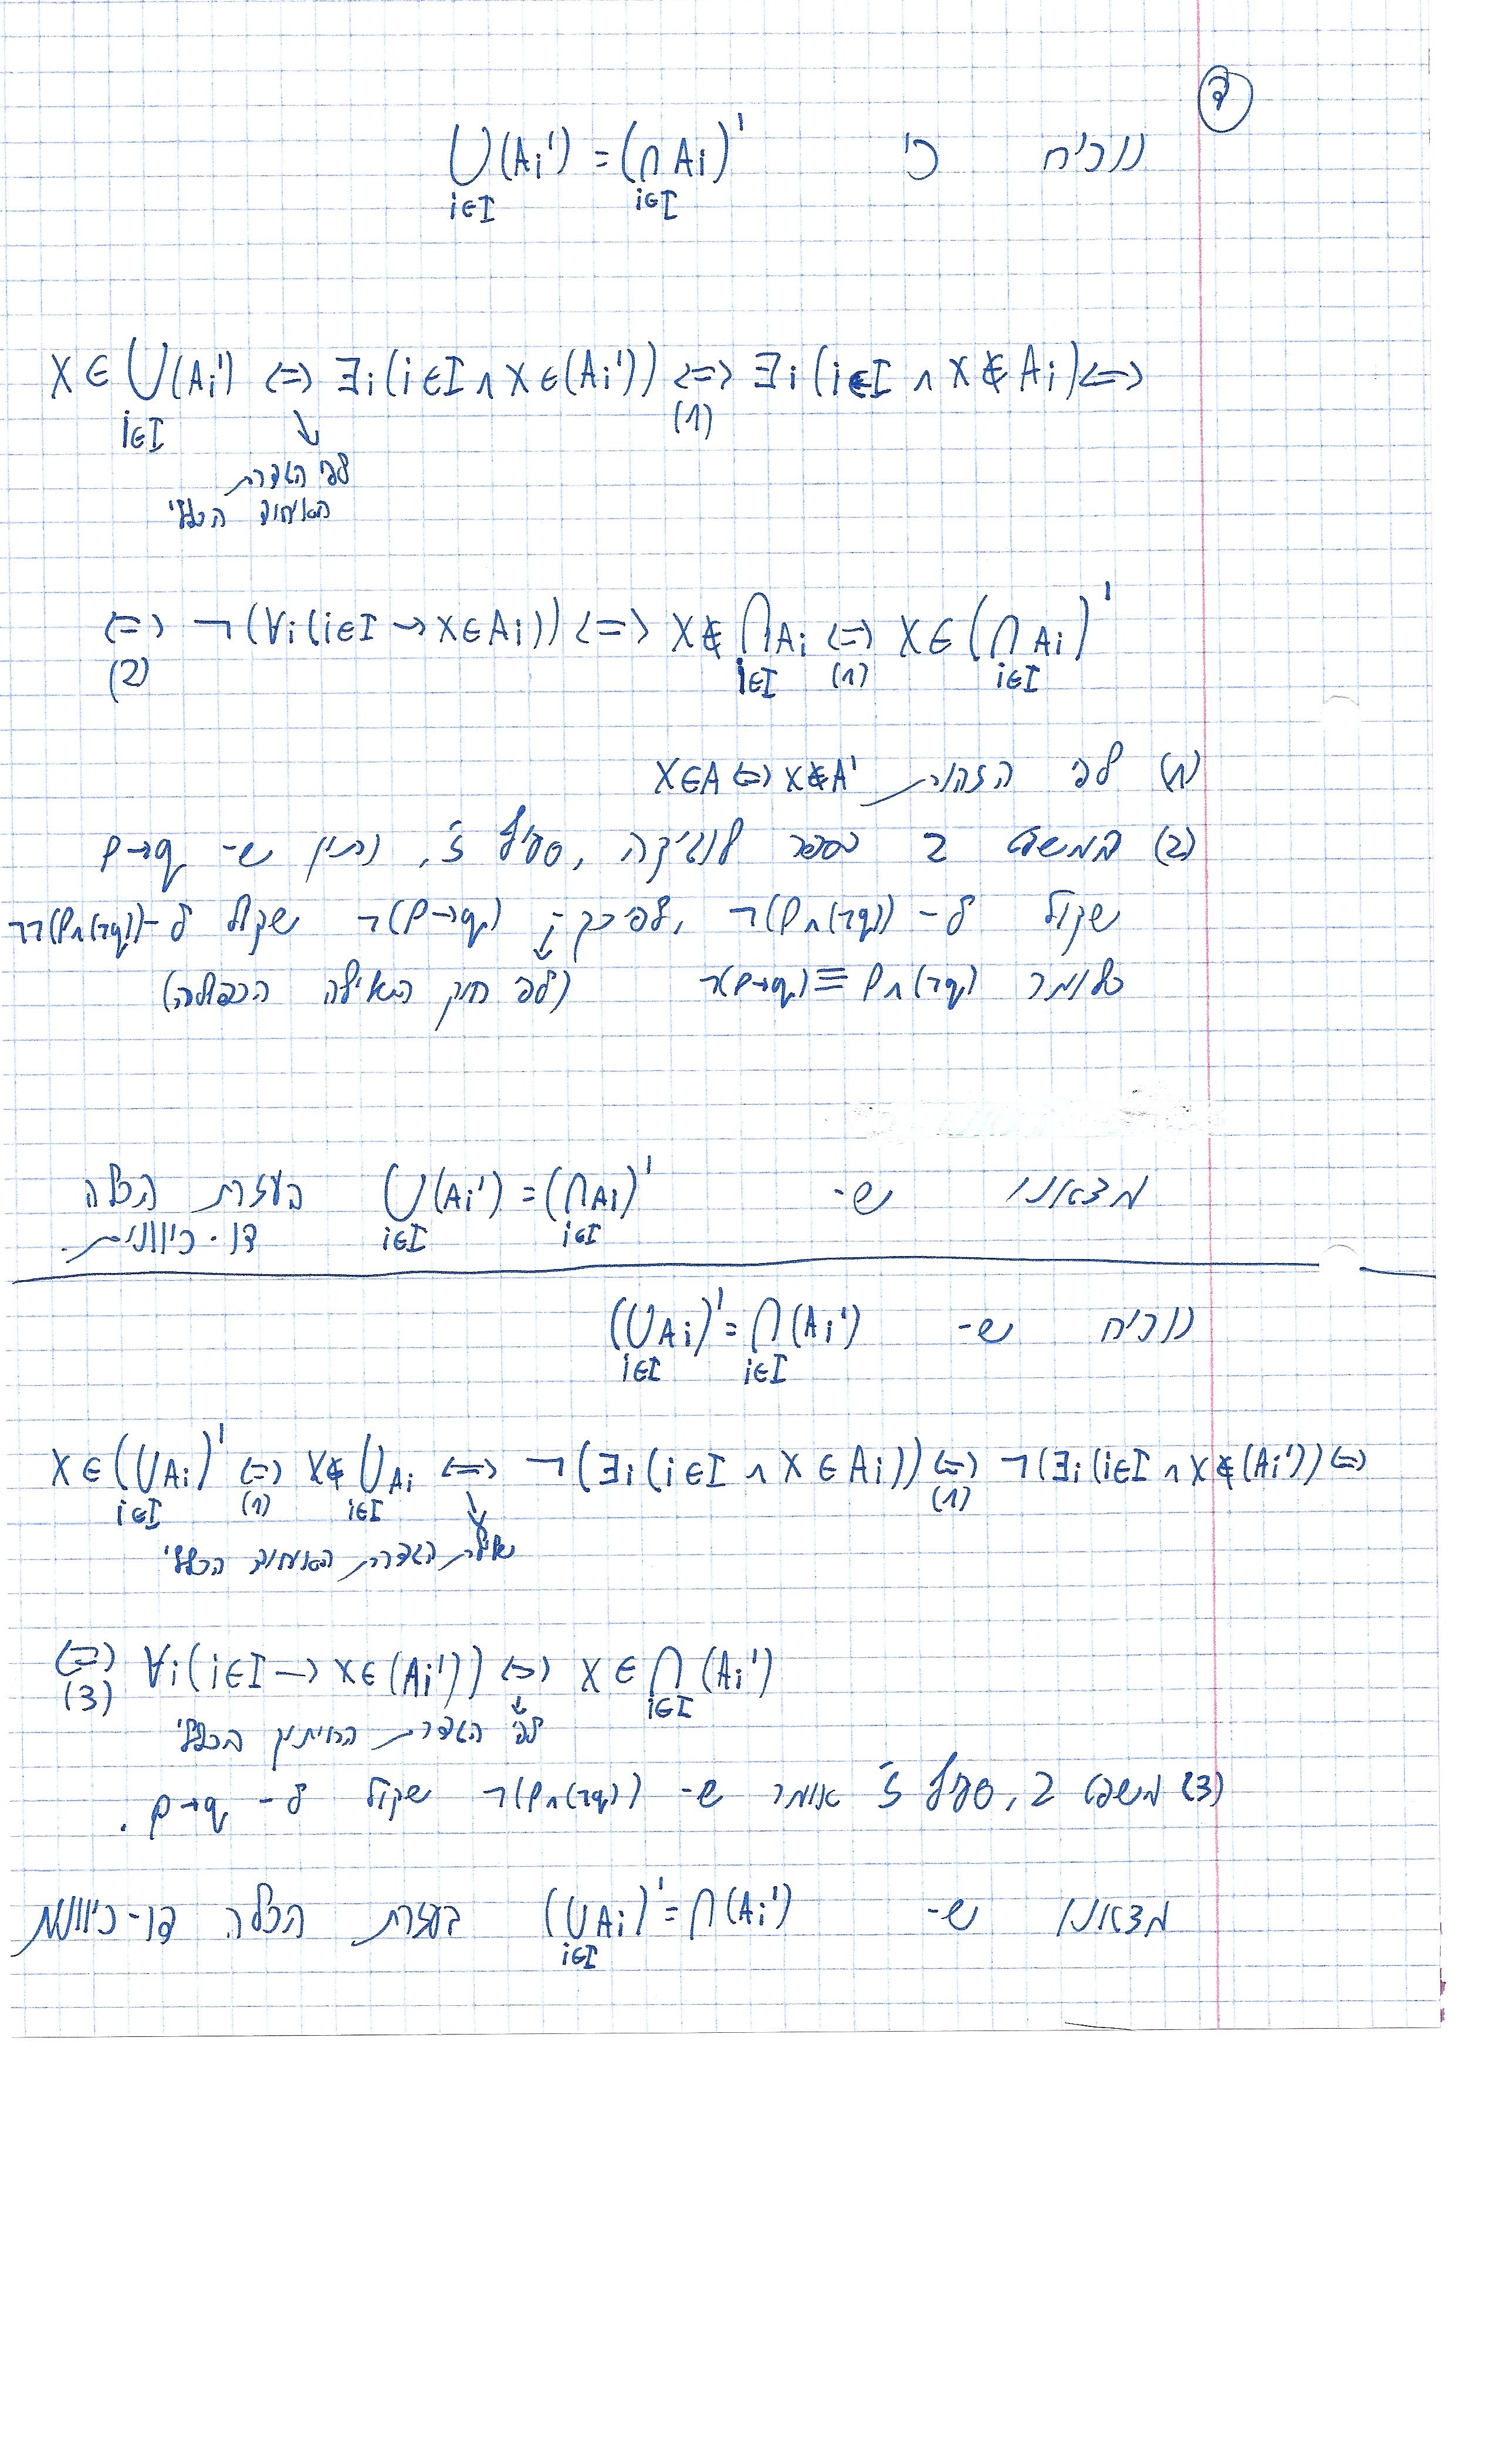 ד
נוכיח כי ⋃(Ai') = (∩ Ai)'
i∈I i∈I
x ∈ ⋃(Ai') ⟺ ∃i(i∈I ∧ x∈(Ai')) ⟺ ∃i(i∈I ∧ x∉Ai) ⟺
i∈I (1)
לפי הגדרת
האיחוד הכללי
⟺ ¬(∀i(i∈I → x∈Ai)) ⟺ x∉⋂Ai ⟺ x∈(⋂Ai)'
(2) i∈I (1) i∈I
(1) לפי הזהות x∈A ⟺ x∉A'
(2) במשפט 2 בספר לוגיקה, סעיף ז', נתון ש- p→q
שקול ל- ¬(p∧(¬q)), לפי כך ¬(p→q) שקול ל- ¬¬(p∧(¬q))
כלומר ¬(p→q) ≡ p∧(¬q) (לפי חוק השלילה הכפולה)
מצאנו ש- ⋃(Ai') = (⋂Ai)' בעזרת הכלה
i∈I i∈I דו-כיוונית.
נוכיח ש- (⋃Ai)' = ⋂(Ai')
i∈I i∈I
x∈(⋃Ai)' ⟺ x∉⋃Ai ⟺ ¬(∃i(i∈I ∧ x∈Ai)) ⟺ ¬(∃i(i∈I ∧ x∉(Ai')) ⟺
i∈I (1) i∈I (1)
שלילת הגדרת האיחוד הכללי
⟺ ∀i(i∈I → x∈(Ai')) ⟺ x∈⋂(Ai')
(3) i∈I
לפי הגדרת החיתוך הכללי
(3) משפט 2, סעיף ז' אומר ש- ¬(p∧(¬q)) שקול ל- p→q.
מצאנו ש- (⋃Ai)' = ⋂(Ai') בעזרת הכלה דו-כיוונית
i∈I